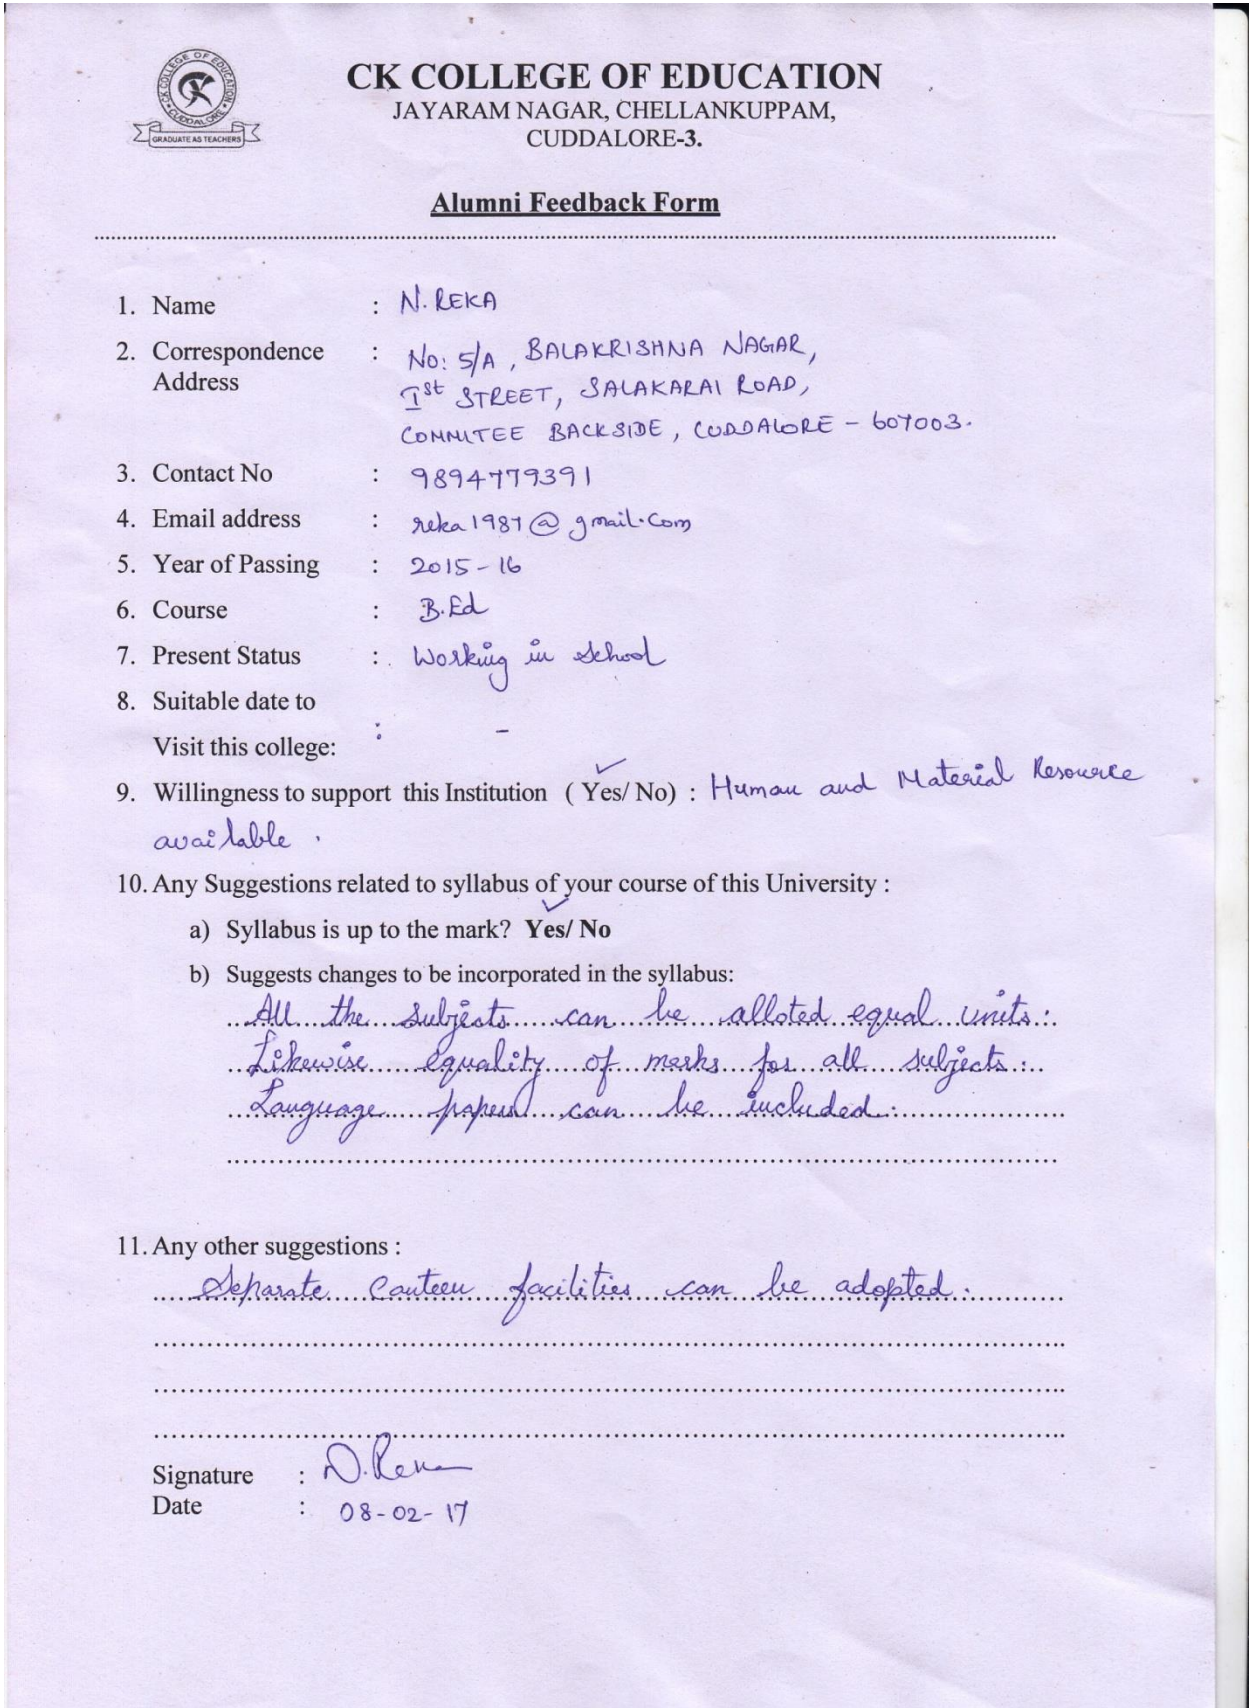 CK COLLEGE OF EDUCATION CUDDALORE
GRADUATE AS TEACHERS
CK COLLEGE OF EDUCATION
JAYARAM NAGAR, CHELLANKUPPAM,
CUDDALORE-3.
Alumni Feedback Form
1. Name : N. REKA
2. Correspondence : No: 5/A, BALAKRISHNA NAGAR,
Address Ist STREET, SALAKARAI ROAD,
COMMITEE BACKSIDE, CUDDALORE - 607003.
3. Contact No : 9894779391
4. Email address : reka1987@gmail.com
5. Year of Passing : 2015-16
6. Course : B.Ed
7. Present Status : Working in school
8. Suitable date to
Visit this college: : -
9. Willingness to support this Institution ( Yes/ No) : Human and Material Resource
available.
10. Any Suggestions related to syllabus of your course of this University :
a) Syllabus is up to the mark? Yes/ No
b) Suggests changes to be incorporated in the syllabus:
All the subjects can be alloted equal units.
Likewise equality of marks for all subjects.
Language papers can be included.
11. Any other suggestions :
Separate canteen facilities can be adopted.
Signature : N. Reka
Date : 08-02-17